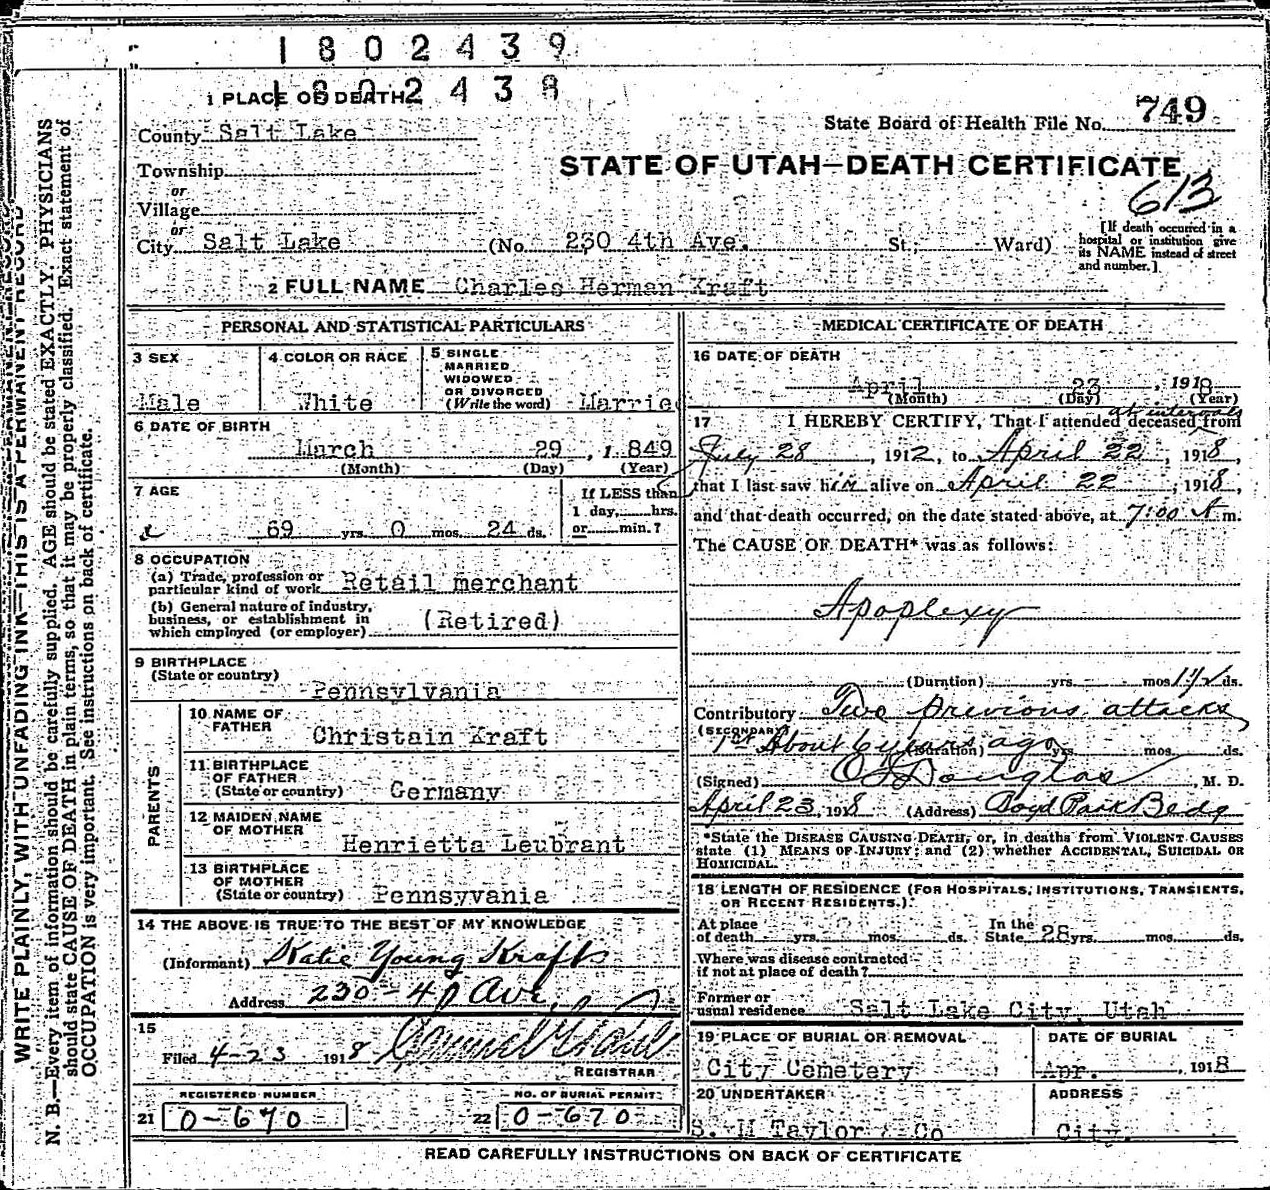 1802439
1802438
1 PLACE OF DEATH
County Salt Lake
State Board of Health File No. 749
Township
STATE OF UTAH—DEATH CERTIFICATE
or
Village
613
or
City Salt Lake (No. 230 4th Ave. St.; Ward)
[If death occurred in a hospital or institution give its NAME instead of street and number.]
2 FULL NAME Charles Herman Kraft
PERSONAL AND STATISTICAL PARTICULARS
3 SEX
Male
4 COLOR OR RACE
White
5 SINGLE
MARRIED
WIDOWED
OR DIVORCED
(Write the word) Marrie
6 DATE OF BIRTH
March 29, 1849
(Month) (Day) (Year)
7 AGE
69 yrs. 0 mos. 24 ds.
If LESS than
1 day, hrs.
or min.?
8 OCCUPATION
(a) Trade, profession or
particular kind of work Retail merchant
(b) General nature of industry,
business, or establishment in
which employed (or employer) (Retired)
9 BIRTHPLACE
(State or country)
Pennsylvania
PARENTS
10 NAME OF
FATHER
Christain Kraft
11 BIRTHPLACE
OF FATHER
(State or country) Germany
12 MAIDEN NAME
OF MOTHER
Henrietta Leubrant
13 BIRTHPLACE
OF MOTHER
(State or country) Pennsyvania
14 THE ABOVE IS TRUE TO THE BEST OF MY KNOWLEDGE
(Informant) Katie Young Kraft
Address 230 - 4th Ave.
15
Filed 4-23 1918
REGISTRAR
REGISTERED NUMBER
21 0-670
NO. OF BURIAL PERMIT
22 0-670
MEDICAL CERTIFICATE OF DEATH
16 DATE OF DEATH
April 23, 1918
(Month) (Day) (Year)
at intervals
17 I HEREBY CERTIFY, That I attended deceased from
July 28, 1912, to April 22, 1918,
that I last saw him alive on April 22, 1918,
and that death occurred, on the date stated above, at 7:00 A m.
The CAUSE OF DEATH* was as follows:
Apoplexy
(Duration) yrs. mos. 1½ ds.
Contributory Two previous attacks
(SECONDARY)
1st About 6 years ago
(Duration) yrs. mos. ds.
(Signed) Douglas, M. D.
April 23, 1918 (Address) Boyd Park Bedg
*State the DISEASE CAUSING DEATH, or, in deaths from VIOLENT CAUSES
state (1) MEANS OF INJURY; and (2) whether ACCIDENTAL, SUICIDAL OR
HOMICIDAL.
18 LENGTH OF RESIDENCE (FOR HOSPITALS, INSTITUTIONS, TRANSIENTS,
OR RECENT RESIDENTS.)
At place
of death yrs. mos. ds.
In the
State 28 yrs. mos. ds.
Where was disease contracted
if not at place of death?
Former or
usual residence Salt Lake City, Utah
19 PLACE OF BURIAL OR REMOVAL
City Cemetery
DATE OF BURIAL
Apr. , 1918
20 UNDERTAKER
S. M Taylor & Co
ADDRESS
City.
READ CAREFULLY INSTRUCTIONS ON BACK OF CERTIFICATE
WRITE PLAINLY, WITH UNFADING INK—THIS IS A PERMANENT RECORD
N. B.—Every item of information should be carefully supplied. AGE should be stated EXACTLY. PHYSICIANS
should state CAUSE OF DEATH in plain terms, so that it may be properly classified. Exact statement of
OCCUPATION is very important. See instructions on back of certificate.